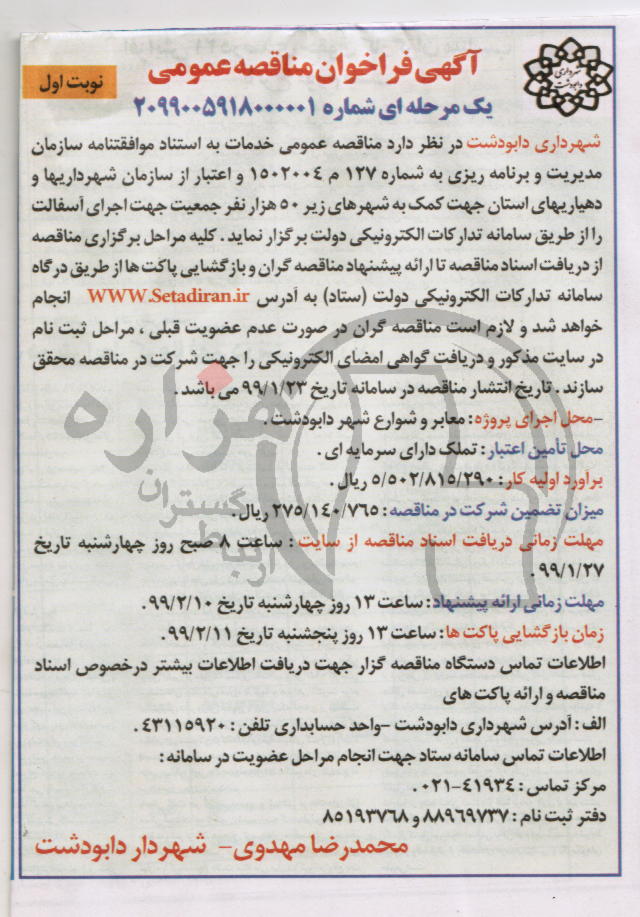 آگهی فراخوان مناقصه عمومی
نوبت اول
شهرداری
دابودشت
یک مرحله ای شماره ۲۰۹۹۰۰۵۹۱۸۰۰۰۰۰۱
شهرداری دابودشت در نظر دارد مناقصه عمومی خدمات به استناد موافقتنامه سازمان
مدیریت و برنامه ریزی به شماره ۱۲۷ م ۱۵۰۲۰۰۴ و اعتبار از سازمان شهرداریها و
دهیاریهای استان جهت کمک به شهرهای زیر ۵۰ هزار نفر جمعیت جهت اجرای آسفالت
را از طریق سامانه تدارکات الکترونیکی دولت برگزار نماید . کلیه مراحل برگزاری مناقصه
از دریافت اسناد مناقصه تا ارائه پیشنهاد مناقصه گران و بازگشایی پاکت ها از طریق درگاه
سامانه تدارکات الکترونیکی دولت (ستاد) به آدرس WWW.Setadiran.ir انجام
خواهد شد و لازم است مناقصه گران در صورت عدم عضویت قبلی ، مراحل ثبت نام
در سایت مذکور و دریافت گواهی امضای الکترونیکی را جهت شرکت در مناقصه محقق
سازند . تاریخ انتشار مناقصه در سامانه تاریخ ۹۹/۱/۲۳ می باشد .
-محل اجرای پروژه : معابر و شوارع شهر دابودشت .
محل تأمین اعتبار : تملک دارای سرمایه ای .
برآورد اولیه کار : ۵/۵۰۲/۸۱۵/۲۹۰ ریال .
میزان تضمین شرکت در مناقصه : ۲۷۵/۱۴۰/۷۶۵ ریال .
مهلت زمانی دریافت اسناد مناقصه از سایت : ساعت ۸ صبح روز چهارشنبه تاریخ
۹۹/۱/۲۷ .
مهلت زمانی ارائه پیشنهاد : ساعت ۱۳ روز چهارشنبه تاریخ ۹۹/۲/۱۰ .
زمان بازگشایی پاکت ها : ساعت ۱۳ روز پنجشنبه تاریخ ۹۹/۲/۱۱ .
اطلاعات تماس دستگاه مناقصه گزار جهت دریافت اطلاعات بیشتر درخصوص اسناد
مناقصه و ارائه پاکت های
الف : آدرس شهرداری دابودشت -واحد حسابداری تلفن : ۴۳۱۱۵۹۲۰ .
اطلاعات تماس سامانه ستاد جهت انجام مراحل عضویت در سامانه :
مرکز تماس : ۴۱۹۳۴-۰۲۱ .
دفتر ثبت نام : ۸۸۹۶۹۷۳۷ و ۸۵۱۹۳۷۶۸
محمدرضا مهدوی- شهردار دابودشت
هزاره
گستران
ارتباط